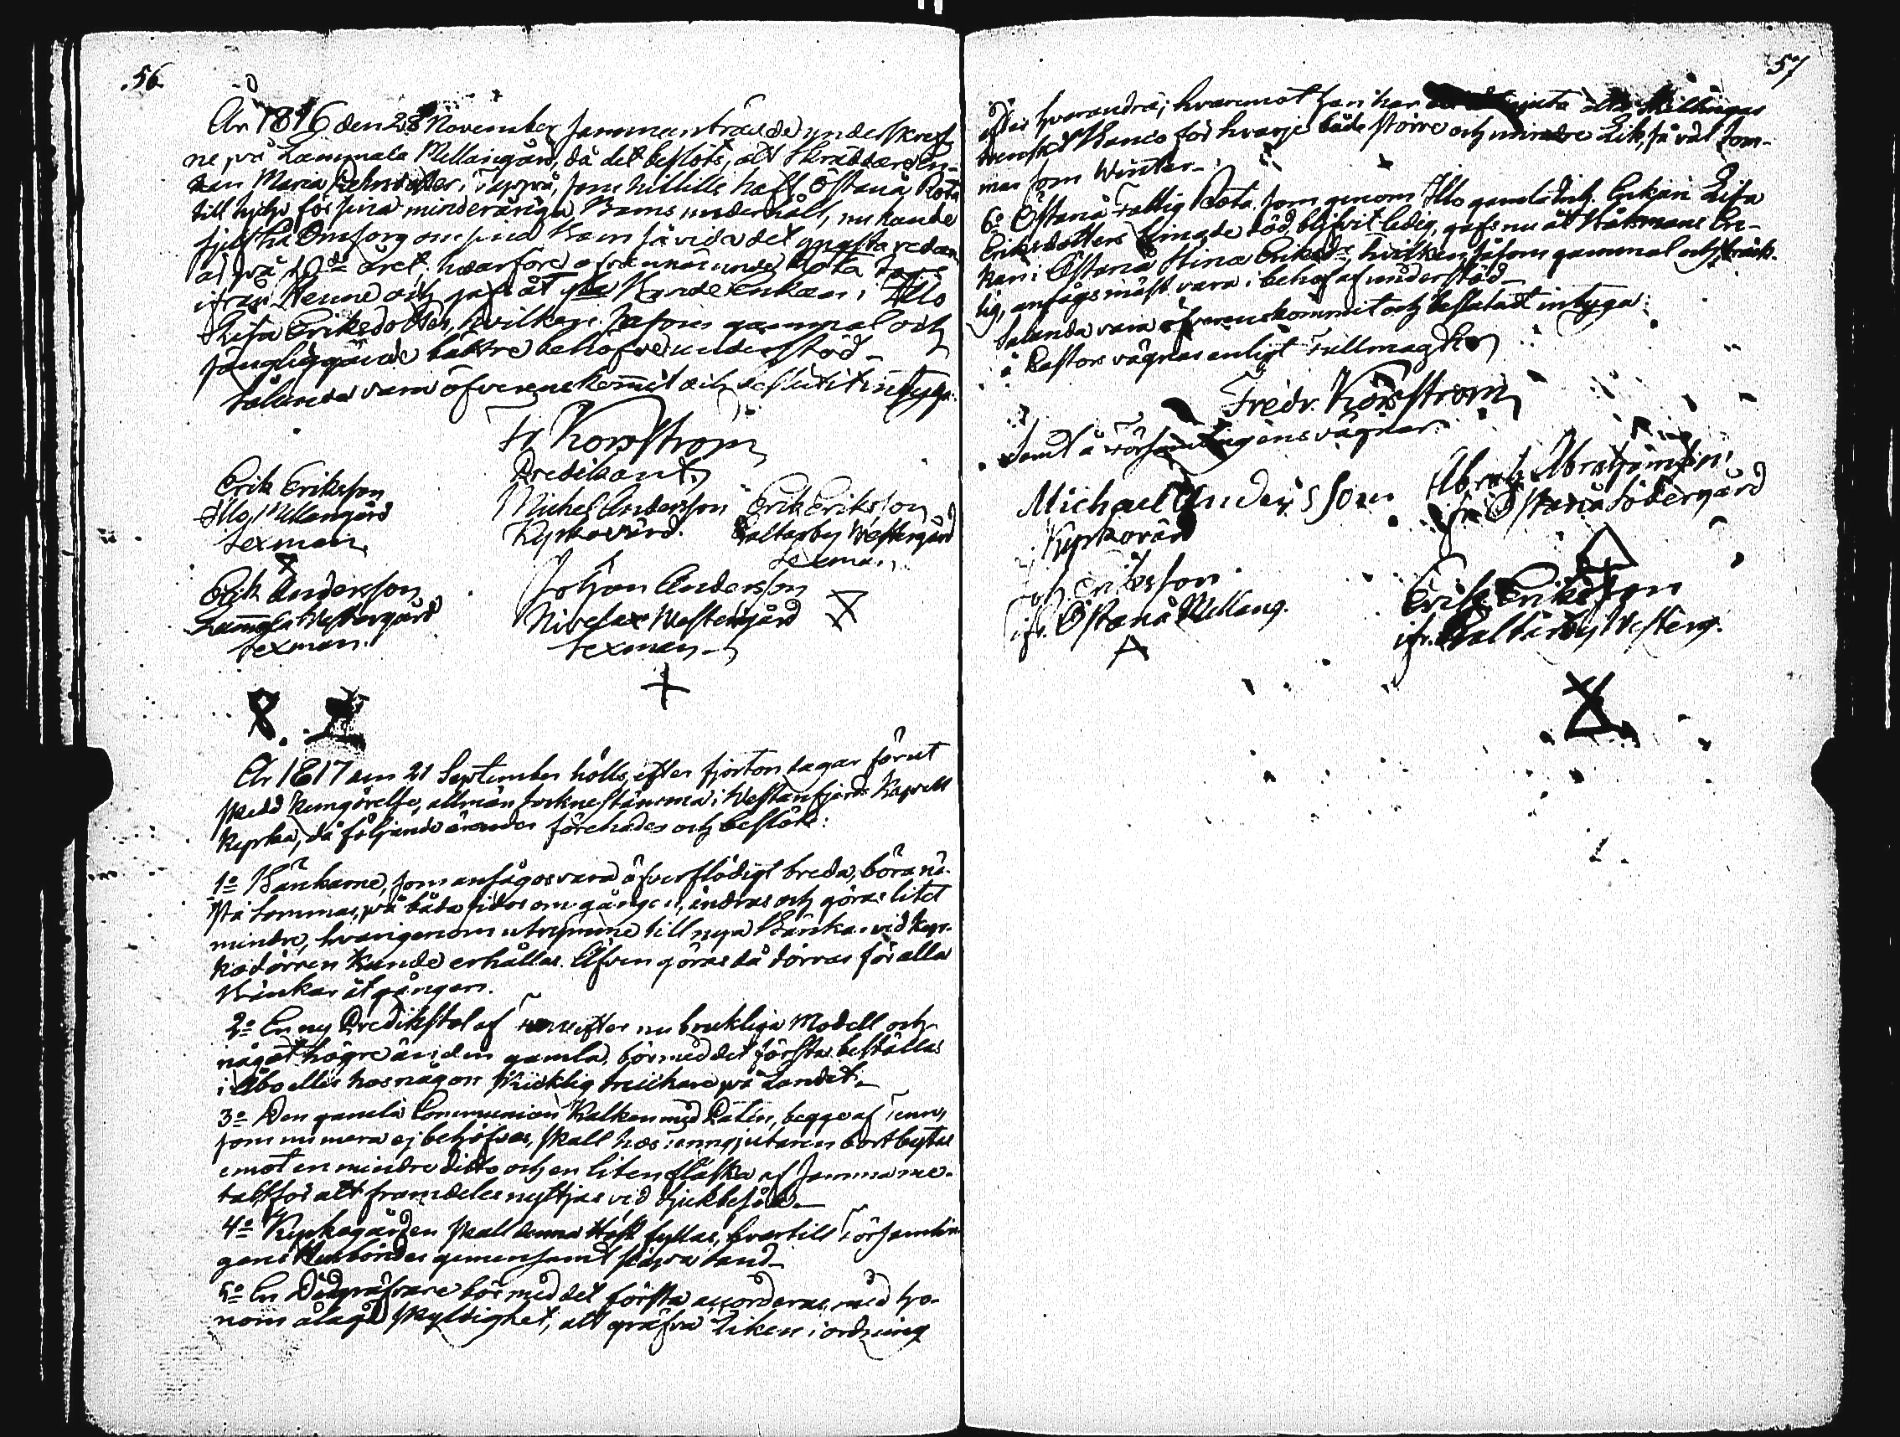 56.
År 1816 den 28 November sammanträdde underskref-
ne på Lammala Mellangård, då det beslöts, att Skräddare En-
kan Maria i Tappå, som hittills haft Östanå Rota
till hjelp för sina minderåriga Barns underhåll, nu kande
sjelf ha Omsorg om sina Barn så vida det yngsta redan
är på året; hvarföre ofvannämnde Rota togs
ifrån Henne och gafs åt Enkan i Illo
Lisa Eriksdotter, hvilken såsom gammal och
sängliggande bättre behöfver understöd_
Sålunda vara öfverenskommit och beslutit intyga:
Fr. Korsström
Predikant.
Erik Eriksson
Illo Mellangård
Sexman.
Michel Andersson
Kyrkovärd.
Erik Eriksson
Galtarby Westergård
Sexman.
Erik Andersson
Lammala Westergård
Sexman.
Johan Andersson
Nivelax Westergård
Sexman_
År 1817 den 21 September hölls, efter fjorton dagar förut
skedd kungörelse, allmän Socknestämma i Westanfjerds Kapell
Kyrka, då följande ärender förehades och beslöts:
1o Bänkarne, som ansågos vara öfverflödigt breda, böra nä-
sta Sommar, på båda sidor om gången, ändras och göras litet
mindre, hvarigenom utrymme till nya Bänkar vid Kyr-
kodörren kunde erhållas. Äfven göras då dörrar för alla
Bänkar åt gången.
2o En ny Predikstol af efter nu brukliga Modell och
något högre än den gamla, bör med det första beställas
i Åbo eller hos någon skicklig snickare på Landet_
3o Den gamla Communion Kalken med Patén, begge af Tenn,
som nu mera ej behöfves, skall hos tenngjutaren bortbytas
emot en mindre ditto och en liten flaska af samma me-
tall för att framdeles nyttjas vid sjukbesök_
4o Kyrkogården skall denna Höst fyllas, hvartill Församlin-
gens Husbönder gemensamt skjra sand_
5o En Dödgräfvare bör med det första accorderas, med ho-
nom ålagd skyldighet, att gräfva Liken i ordning
57
efter hvarandra; hvaremot han har åtta Skillingar
Svenskt Banco för hvarje både större och mindre Lik, så väl Som-
mar som Winter_
6o Östanå Fattig Rota, som genom Illo gamla Enkan Lisa
Eriksdotters timade död, blifvit ledig, gafs nu åt Enk-
kan i Östanå Stina Eriksdr, hvilken såsom gammal och bräck-
lig, ansågs mäst vara i behof af understöd_
Sålunda vara öfverenskommit och beslutadt intyga:
å Pastors vägnar enligt Fullmagt
Fredr. Korsström
Samt å Församlingens vägnar:
Michael Andersson
Kyrkovärd
Abrah. Abrahamsson
ifr. Östanå Södergård
Joh. Eriksson
ifr. Östanå Mellang.
Erik Eriksson
ifr. Galtarby Westerg.